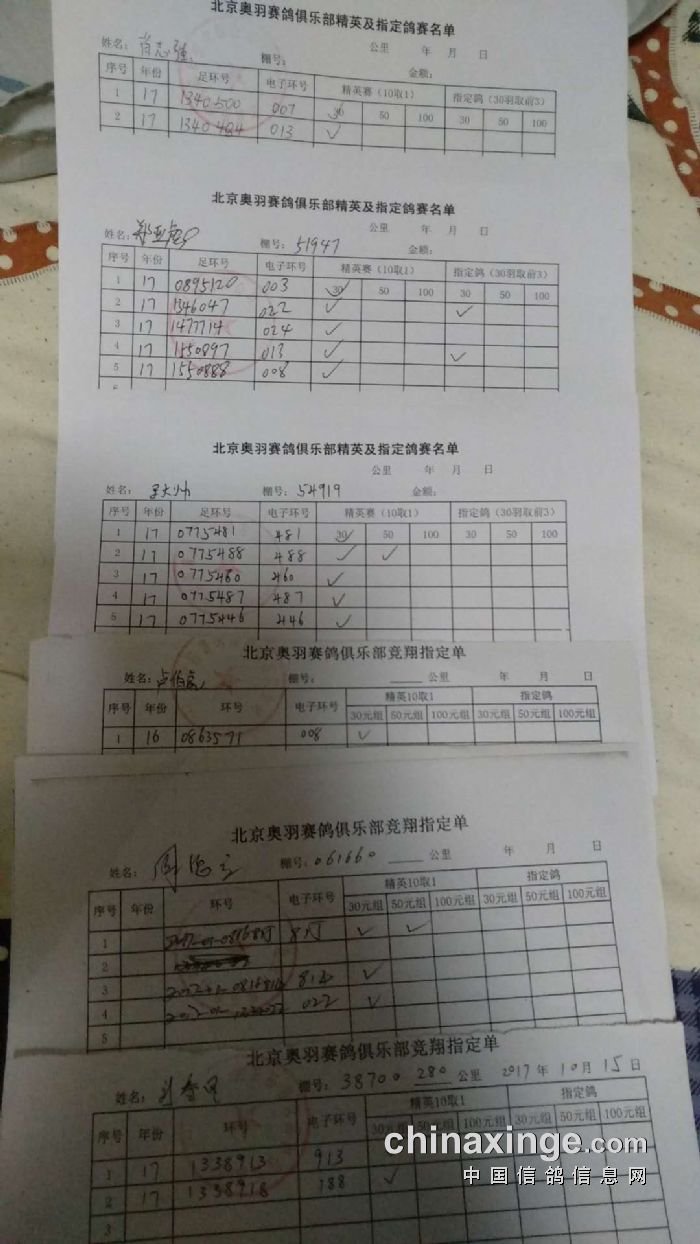 北京奥羽赛鸽俱乐部精英及指定鸽赛名单
公里 年 月 日
姓名: 肖志强 棚号: 金额:
序号 年份 足环号 电子环号 精英赛（10取1） 指定鸽（30羽取前3）
30 50 100 30 50 100
1 17 1340500 007
2 17 1340424 013 ✓
北京奥羽赛鸽俱乐部精英及指定鸽赛名单
公里 年 月 日
姓名: 棚号: 51947 金额:
序号 年份 足环号 电子环号 精英赛（10取1） 指定鸽（30羽取前3）
30 50 100 30 50 100
1 17 0895120 003
2 17 1346047 022 ✓ ✓
3 17 1477714 024 ✓
4 17 1550897 013 ✓ ✓
5 17 1550888 008 ✓
北京奥羽赛鸽俱乐部精英及指定鸽赛名单
公里 年 月 日
姓名: 棚号: 54919 金额:
序号 年份 足环号 电子环号 精英赛（10取1） 指定鸽（30羽取前3）
30 50 100 30 50 100
1 17 0775481 481
2 17 0775488 488 ✓ ✓
3 17 0775460 460 ✓
4 17 0775487 487 ✓
5 17 0775446 446 ✓
北京奥羽赛鸽俱乐部竞翔指定单
姓名: 棚号: 公里 年 月 日
序号 年份 环号 电子环号 精英10取1 指定鸽
30元组 50元组 100元组 30元组 50元组 100元组
1 16 0863571 008 ✓
北京奥羽赛鸽俱乐部竞翔指定单
姓名: 棚号: 061660 公里 年 月 日
序号 年份 环号 电子环号 精英10取1 指定鸽
30元组 50元组 100元组 30元组 50元组 100元组
1 ✓ ✓
2
3 814 ✓
4 022 ✓
5
北京奥羽赛鸽俱乐部竞翔指定单
姓名: 棚号: 38700 280 公里 2017 年 10 月 15 日
序号 年份 环号 电子环号 精英10取1 指定鸽
30元组 50元组 100元组 30元组 50元组 100元组
1 17 1338913 913
2 17 1338918 188 ✓
3
chinaxinge.com
中国信鸽信息网